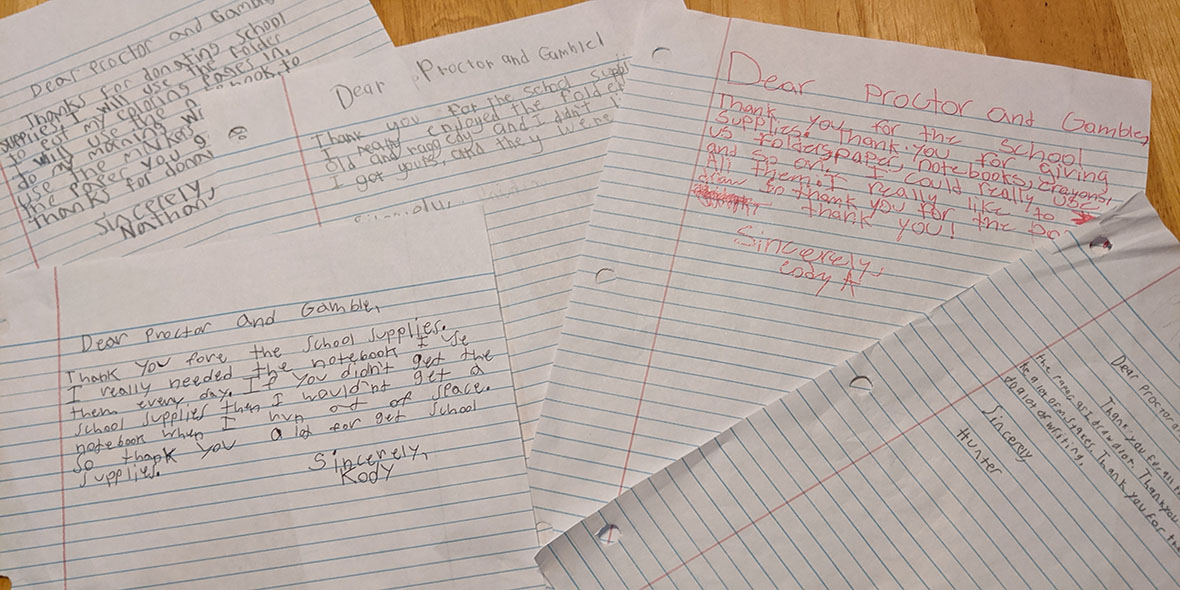 Dear Proctor and Gamble
Thanks for donating school
supplies! I will use the folder
to eat my coloring pages in.
I will use the notebook to
do my morning
use the markers
the paper you
Thanks for donat
Sincerely,
Nathan,
Dear Proctor and Gamble!
Thank you for the school suppl
I really enjoyed the folde
old and raggedy and I didn't
I got yours, and they were
Dear Proctor and Gamble,
Thank you for the school
Supplies. Thank you for giving
us folders, paper, notebooks, crayons,
and so on. I could really use
All them. I really like to
draw so thank you for the
thank you!
Sincerely,
Cody A
Dear Proctor and Gamble,
Thank you fore the school supplies.
I really needed the notebook I use
them every day. If you didn't get the
school supplies then I would'nt get a
notebook when I run out of space.
So thank you a lot for get school
supplies.
Sincerely,
Kody
Dear Proctor a
Thank you for all
the paper as I draw a lot. Thank you
a lot of mistakes. Thank you for th
do a lot of writing.
Sincerely
Hunter